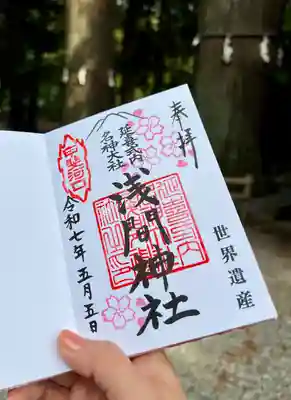 奉拝
世界遺産
延喜式内
名神大社
浅間神社
令和七年五月五日